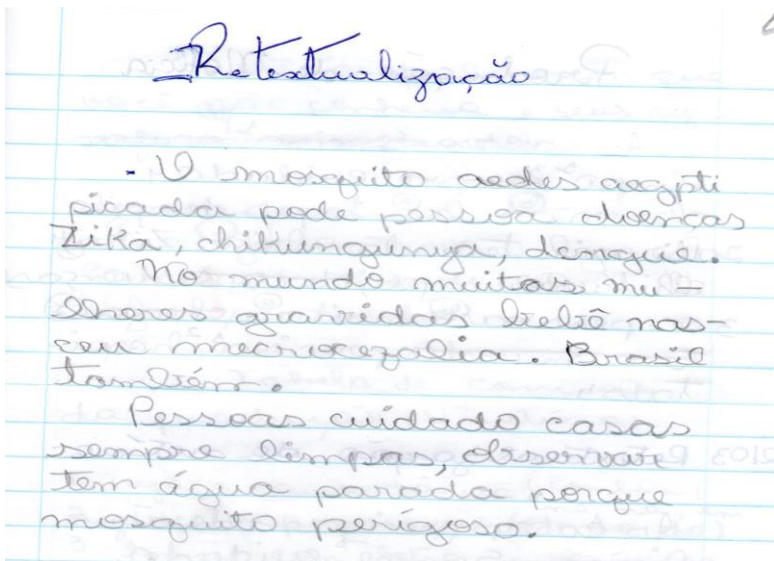 Retextualização
. O mosquito aedes aegypti
picada pode pessoa doenças
Zika, chikungunya, dengue.
No mundo muitas mu-
lheres gravidas bebê nas-
ceu mecrocezalia. Brasil
também.
Pessoas cuidado casas
sempre limpas, observar
tem água parada porque
mosquito perígoso.